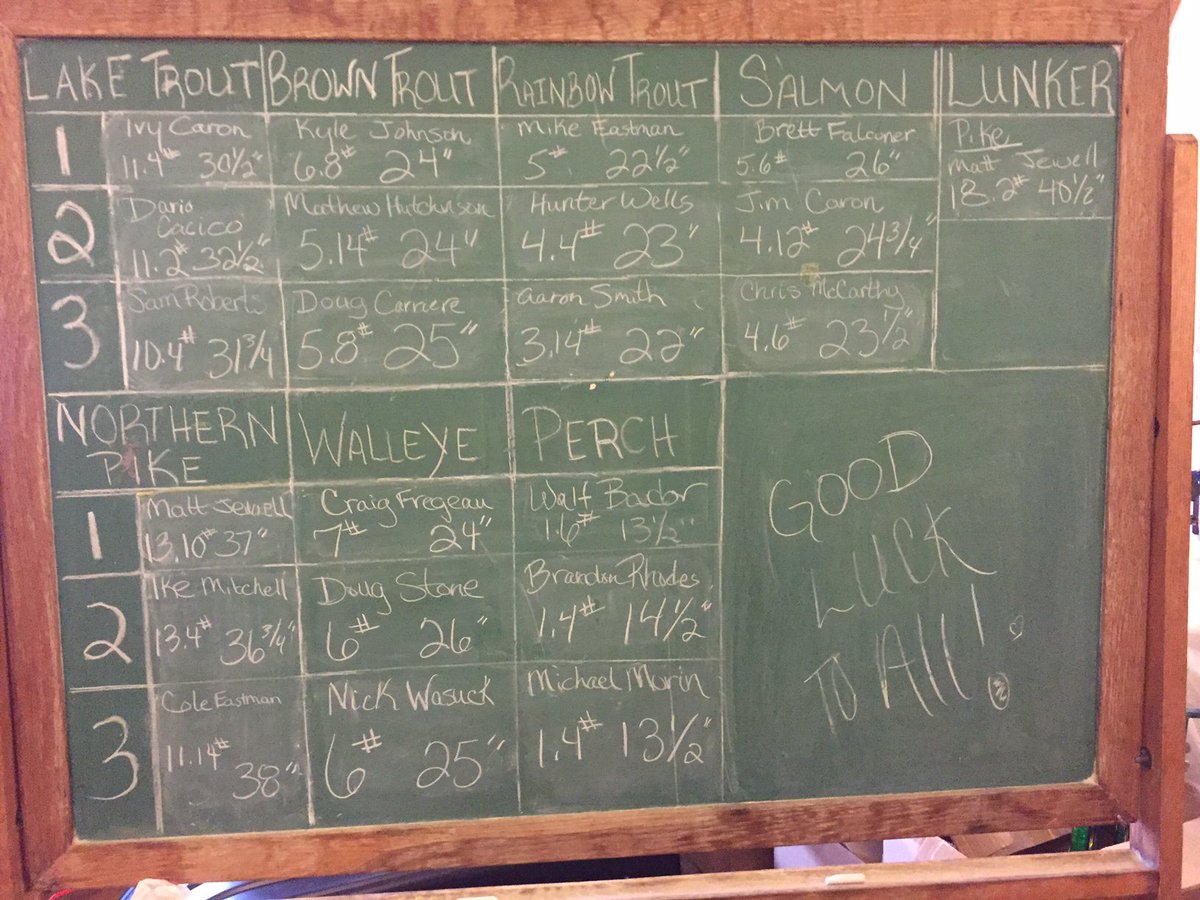 LAKE TROUT BROWN TROUT RAINBOW TROUT SALMON LUNKER
1
Ivy Caron
11.4# 30½"
Kyle Johnson
6.8# 24"
Mike Eastman
5# 22½"
Brett Falconer
5.6# 26"
Pike
Matt Jewell
18.2# 40½"
2
Dario
Cacico
11.2# 32½"
Matthew Hutchinson
5.14# 24"
Hunter Wells
4.4# 23"
Jim Caron
4.12# 24¾"
3
Sam Roberts
10.4# 31¾
Doug Carriere
5.8# 25"
Aaron Smith
3.14# 22"
Chris McCarthy
4.6# 23½"
NORTHERN
PIKE
WALLEYE
PERCH
1
Matt Jewell
13.10# 37"
Craig Fregeau
7# 24"
Walt
1.6# 13½"
2
Ike Mitchell
13.4# 36¾"
Doug Stone
6# 26"
Brandon Rhodes
1.4# 14½"
3
Cole Eastman
11.14#
38"
Nick Wasuck
6# 25"
Michael Morin
1.4# 13½"
GOOD
LUCK
TO All!